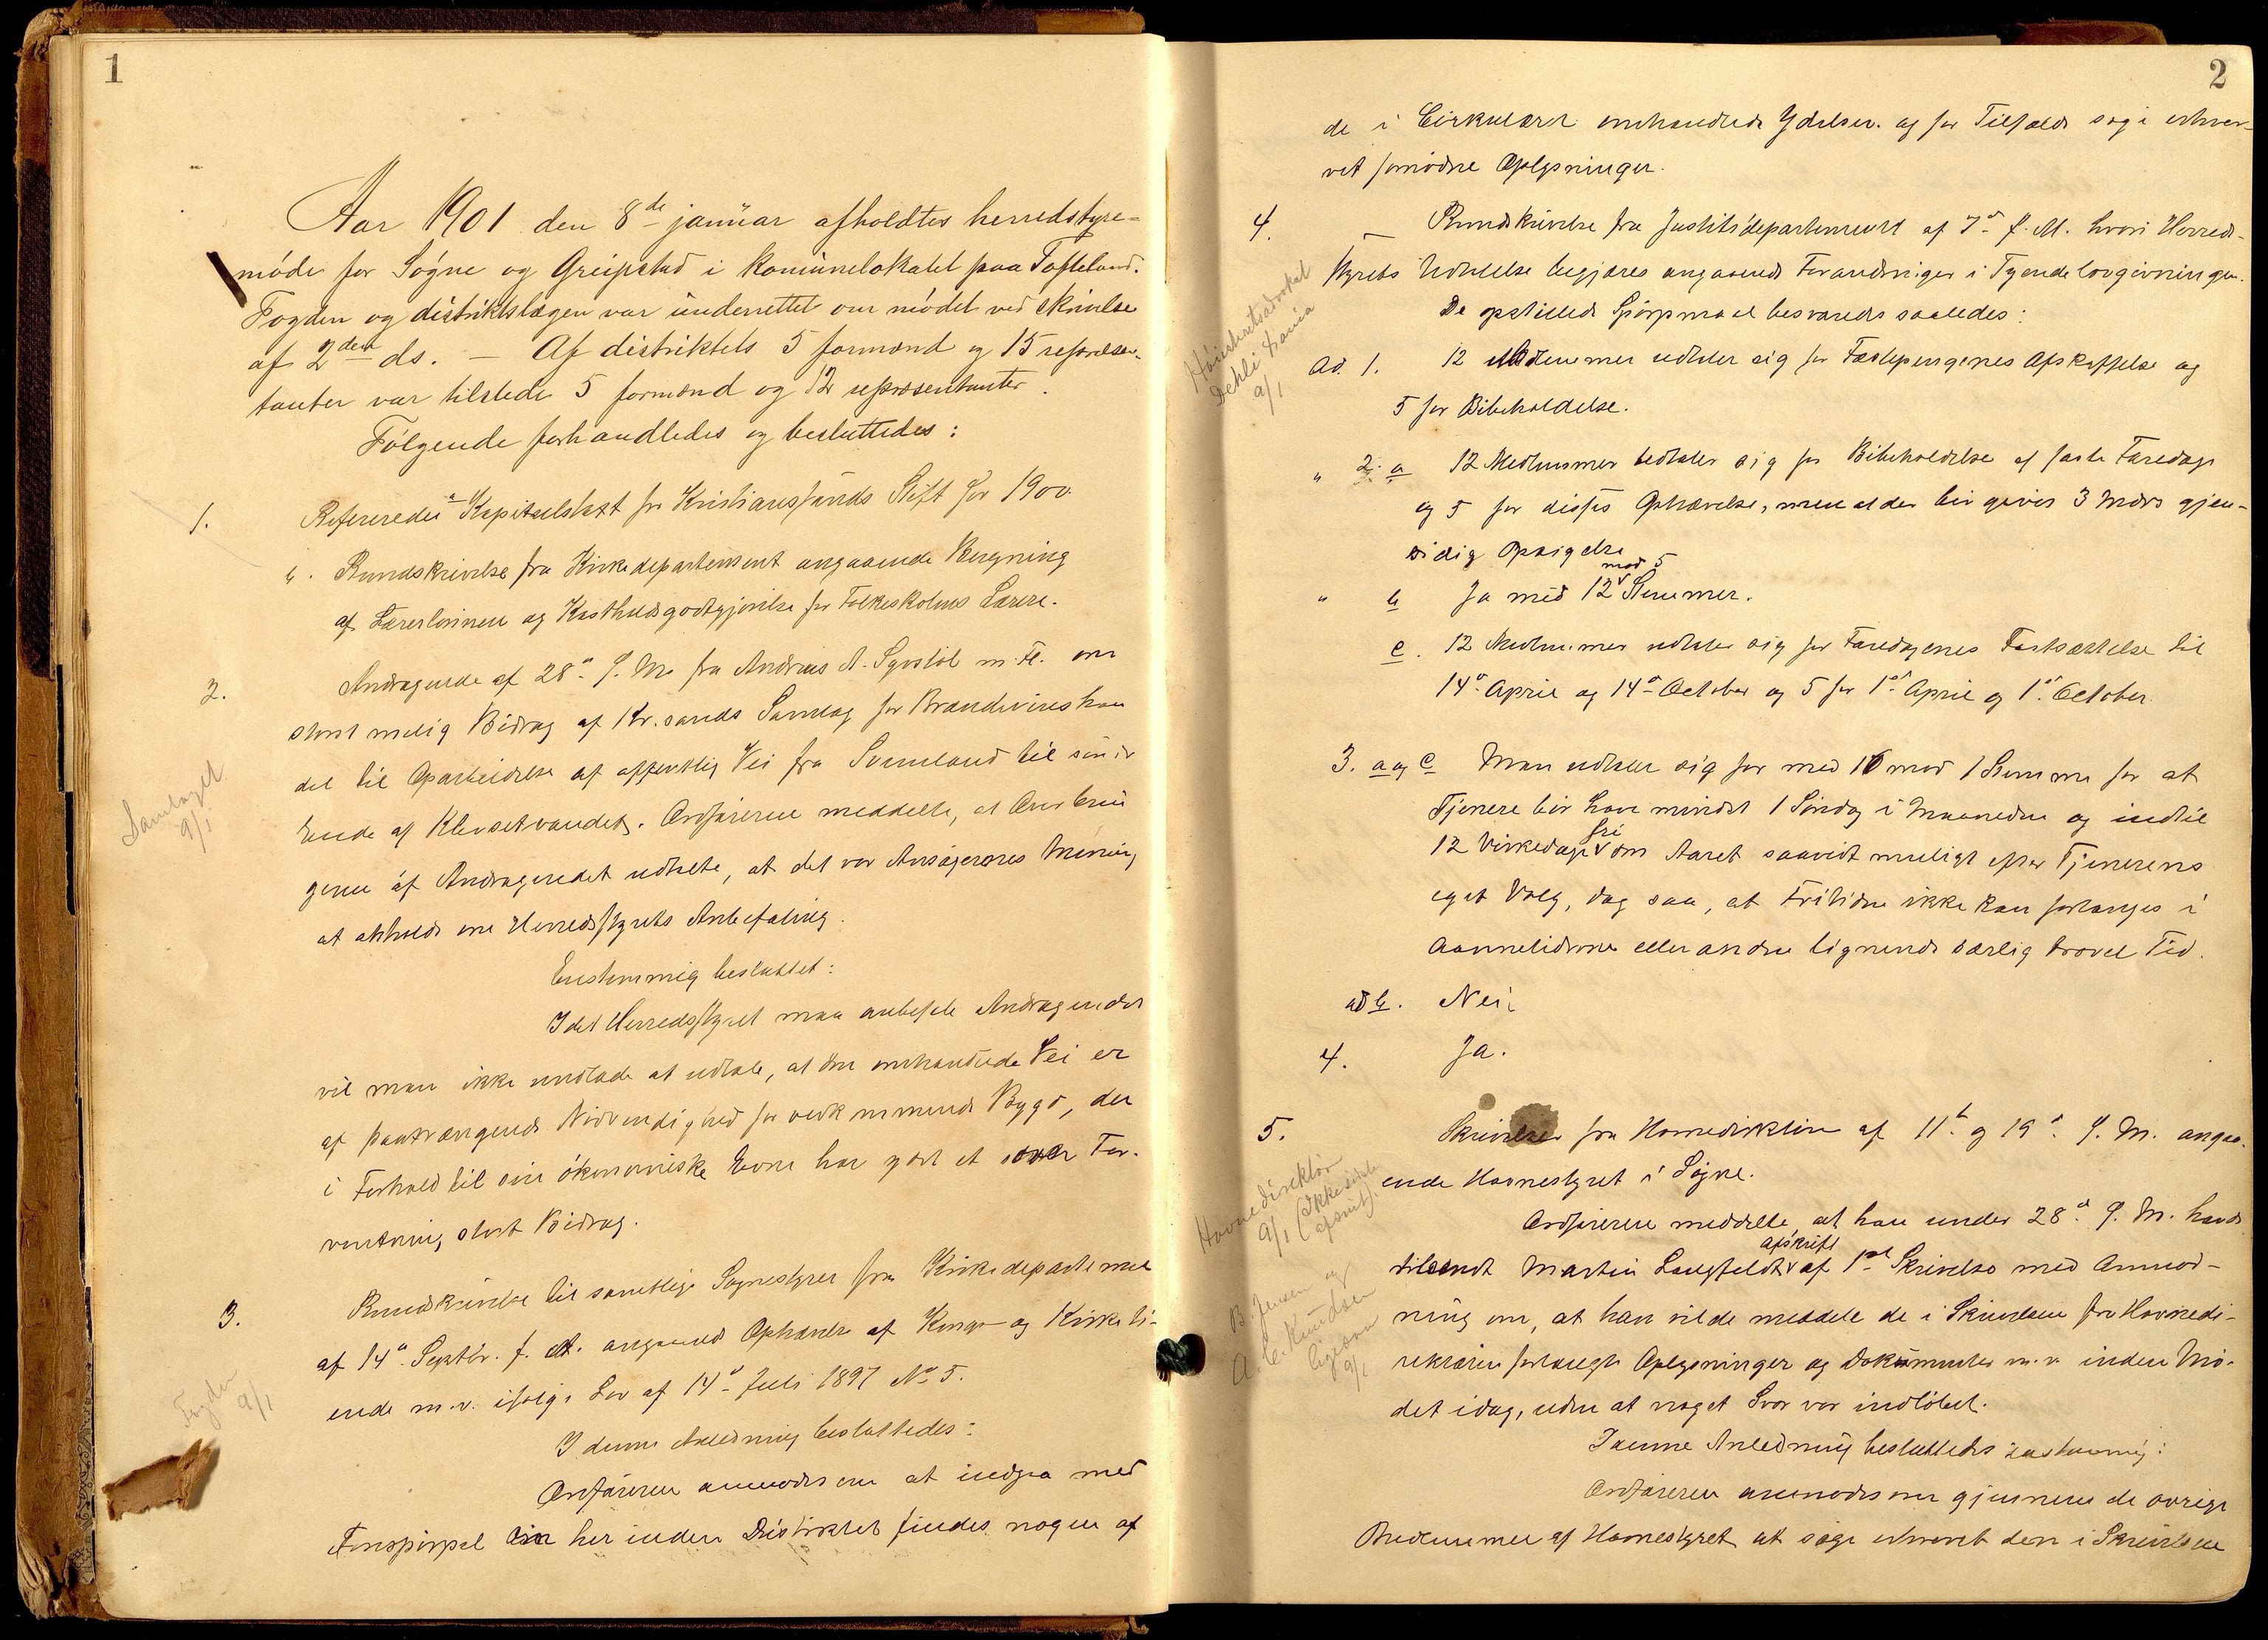 1
Aar 1901 den 8de januar afholdtes herredstyre-
møde for Søgne og Greipstad i komunelokalet paa Tofteland.
Fogden og distriktslægen var underrettet om mødet ved skrivelse
af 2den ds. — Af distriktets 5 formænd og 15 repræsen-
tanter var tilstede 5 formænd og 12 repræsentanter.
Følgende forhandledes og besluttedes:
1. Refereredes a Kapitelstakt for Kristianssands Stift for 1900.
b. Rundskrivelse fra Kirkedepartement angaaende Beregning
af Lærerlønnen og Kostholdsgodtgjørelse for Folkeskolens Lærere.
2. Andragende af 28de f. M. fra Andreas A. m. Fl. om
størst mulig Bidrag af Kr.sands Samlag for Brændevinshan
del til Oparbeidelse af offentlig Vei fra til søndr
Ende af Klevsetvandet. Ordføreren meddelte, at Overbrin
geren af Andragendet udtalte, at det var Ansøgernes Mening
at anholde om Herredsstyrets Anbefaling.
Enstemmig besluttet:
Idet Herredsstyret maa anbefale Andragendet
vil man ikke undlade at udtale, at den omhandlede Vei er
af paatrængende Nødvendighed for vedkommende Bygd, der
i Forhold til sin økonomiske Evne har gjort et over For-
ventning stort Bidrag.
Samlaget
9/1
3. Rundskrivelse til samtlige Sognestyrer fra Kirkedepartemen
af 14de Septbr. f. A. angaaende Ophævelse af Konge- og Kirketi-
ende m.v. ifølge Lov af 14de Juli 1897 No 5.
I denne Anledning besluttedes:
Ordføreren anmodes om at indgaa med
Forespørsel om her inden Distriktet findes nogen af
Fogden
9/1
2
de i Cirkulæret omhandlede Ydelser og for Tilfælde søge erhver-
vet fornødne Oplysninger.
4. Rundskrivelse fra Justitsdepartementet af 7de f. M. hvori Herreds-
styrets Udtalelse begjæres angaaende Forandringer i Tyendelovgivningen.
De opstillede Spørgsmaal besvaredes saaledes:
Høiesteretsadvokat
9/1
Ad. 1. 12 Medlemmer udtaler sig for Fæstepengenes Afskaffelse og
5 for Bibeholdelse.
" 2. a 12 Medlemmer udtaler sig for Bibeholdelse af faste Faredage
og 5 for disses Ophævelse, men at der bør gives 3 Mdrs gjen-
sidig Opsigelse
" b Ja med 12 mod 5 Stemmer.
c. 12 Medlemmer udtaler sig for Faredagenes Fastsættelse til
14de April og 14de October og 5 for 1ste April og 1ste October.
3. a og c Man udtaler sig for med 16 mod 1 Stemme for at
Tjenere bør have mindst 1 Søndag i Maaneden og indtil
12 Virkedage fri om Aaret saavidt muligt efter Tjenerens
eget Valg, dog saa, at Fritiden ikke kan forlanges i
Aannetiderne eller anden lignende særlig travel Tid.
ad b. Nei.
4. Ja.
5. Skrivelser fra Havnedirektøren af 11te og 19de f. M. angaa-
ende Havnestyret i Søgne.
Havnedirektør
9/1 (Ikke sendt
afskrift)
Ordføreren meddelte, at han under 28de f. M. havde
tilsendt Martin Langfeldt afskrift af 1ste Skrivelse med Anmod-
ning om, at han vilde meddele de i Skrivelsen fra Havnedi-
rektøren forlangte Oplysninger og Dokumenter m.v. inden Mø-
det idag, uden at noget Svar var indløbet.
B. Jensen og
A. C. Knudsen
9/1
I denne Anledning besluttedes enstemmig:
Ordføreren anmodes om gjennem de øvrige
Medlemmer af Havnestyret at søge erhvervet den i Skrivelsen